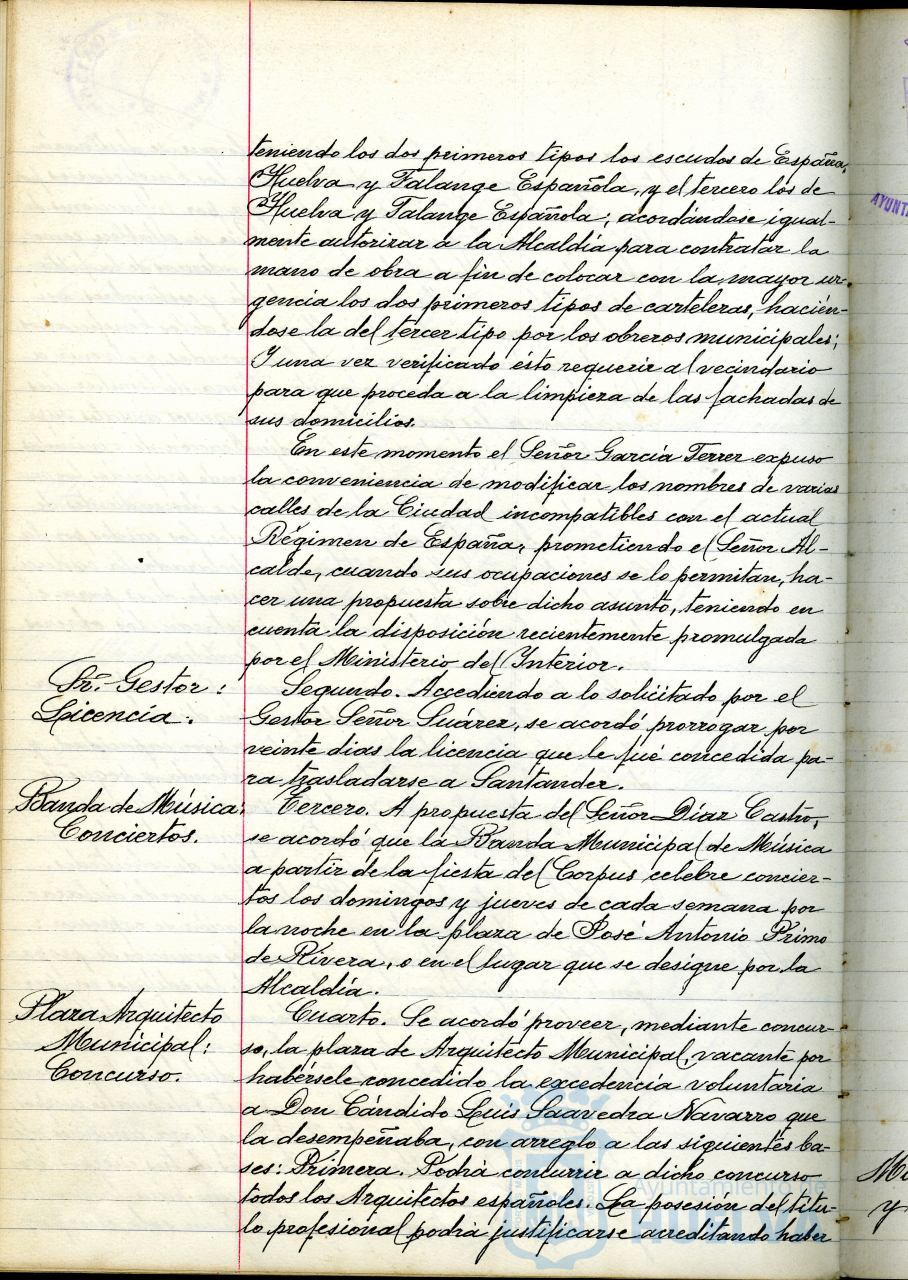 teniendo los dos primeros tipos los escudos de España,
Huelva y Falange Española, y el tercero los de
Huelva y Falange Española; acordándose igual-
mente autorizar a la Alcaldía para contratar la
mano de obra a fin de colocar con la mayor ur-
gencia los dos primeros tipos de carteleras, hacién-
dose la del tercer tipo por los obreros municipales;
Y una vez verificado ésto requerir al vecindario
para que proceda a la limpieza de las fachadas de
sus domicilios.
En este momento el Señor García Ferrer expuso
la conveniencia de modificar los nombres de varias
calles de la Ciudad incompatibles con el actual
Régimen de España, prometiendo el Señor Al-
calde, cuando sus ocupaciones se lo permitan, ha-
cer una propuesta sobre dicho asunto, teniendo en
cuenta la disposición recientemente promulgada
por el Ministerio del Interior.
Sr. Gestor:
Licencia.
Segundo. Accediendo a lo solicitado por el
Gestor Señor Suárez, se acordó prorrogar por
veinte dias la licencia que le fué concedida pa-
ra trasladarse a Santander.
Banda de Música:
Conciertos.
Tercero. A propuesta del Señor Díaz Castro,
se acordó que la Banda Municipal de Música
a partir de la fiesta del Corpus celebre concier-
tos los domingos y jueves de cada semana por
la noche en la plaza de José Antonio Primo
de Rivera, o en el lugar que se designe por la
Alcaldía.
Plaza Arquitecto
Municipal:
Concurso.
Cuarto. Se acordó proveer, mediante concur-
so, la plaza de Arquitecto Municipal, vacante por
habérsele concedido la excedencia voluntaria
a Don Cándido Luis Saavedra Navarro que
la desempeñaba, con arreglo a las siguientes ba-
ses: Primera. Podrá concurrir a dicho concurso
todos los Arquitectos españoles. La posesión del títu-
lo profesional podrá justificarse acreditando haber
Ayuntamiento de
HUELVA
AYUNTA
y